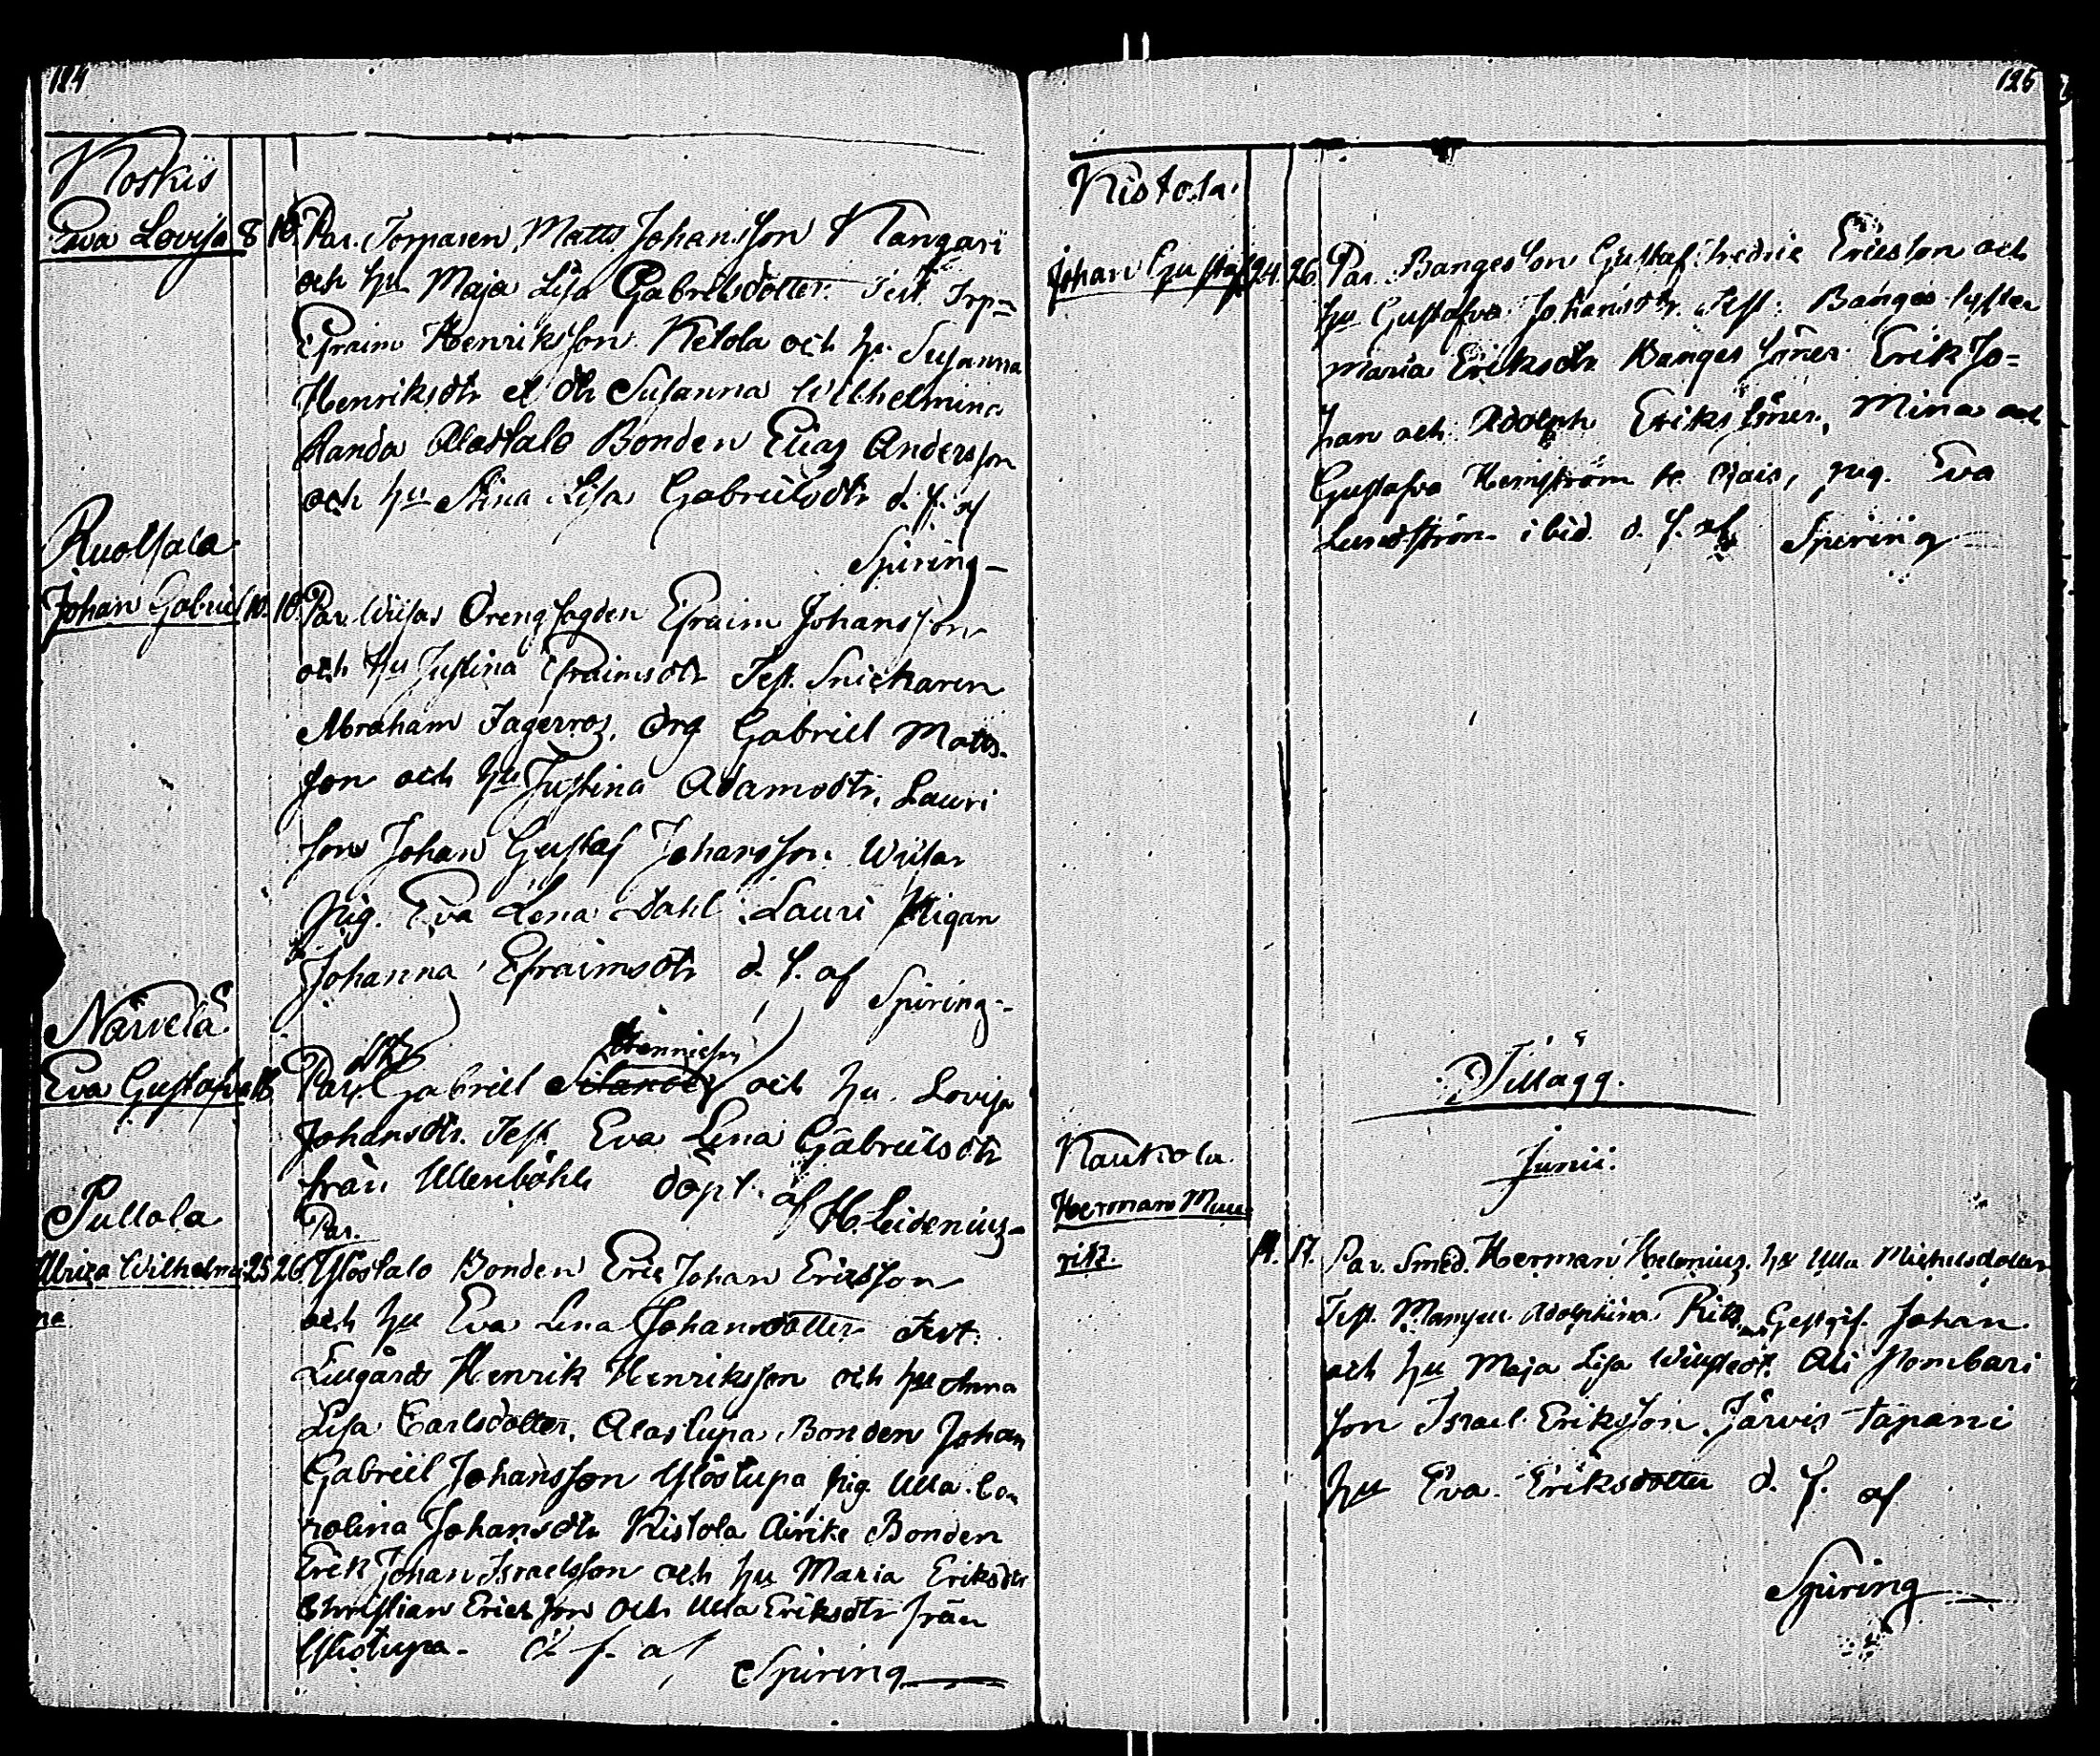 124
Koskis
Eva Lovisa 8 10. Par. Torparen Matts Johansson Kangari
och hu Maja Lisa Gabrielsdotter. Test. Trp=
Efraim Henriksson Ketola och hu Susanna
Henriksdtr et dtr Susanna Wilhelmina
Alastalo Bonden Elias Andersson
och hu Stina Lisa Gabrielsdtr d. f. af
Spiring
Ruolsala
Johan Gabriel 10. 10. Par. Drengsagden Efraim Johansson
och hu Justina Efraimsdtr Test. Snickaren
Abraham Jagerroz, drg Gabriell Matts-
son och hu Justina Adamsdtr, Lauri
son Johan Gustaf Johansson
pig. Eva Lena Dahl. Lauri Pigan
Johanna Efraimsdtr d. f. af
Spiring
Närvelä
Eva Gustafva 18 Par. Gabriell och hu. Lovisa
Johansdtr. Test Eva Lena Gabrielsdtr
från döpt. af H. Leidenius
Pullola
Ulrica Wilhelmi 25 26. Par. Ylöstalo Bonden Eric Johan Ericsson
na
och hu Eva Lena Johansdotter Test.
Henrik Henriksson och hu Anna
Lisa Carlsdotter, Alastupa Bonden Johan
Gabriel Johansson Ylöstupa pig. Ulla Ca-
rolina Johansdtr Ristola Airike Bonden
Erik Johan Israelsson och hu Maria Eriksdtr
Christian Ericsson och Ulla Eriksdtr från
Ylistupa. d. f. af Spiring
125
Ristola.
Johan Gustaf 24. 26. Par. Bangesson Gustaf Fredric Ericsson och
hu Gustafva Johansdtr. Test: Banges
Maria Eriksdtr Banges söner Erik Jo=
han och Adolph Eriks söner, Mina och
Gustafva pig. Eva
Lundström ibid. d. f. af Spiring
Tillägg.
Junii.
Kaukola.
Herman Mau
ritz. 14. 17. Par. Smed. Herman Helenius. hu Ulla Michelsdotter
Test. Mamsell Adolphina Ritz, Gestgif. Johan
och hu Maja Lisa Ali Pombari
son Israel Eriksson. Järvis Tapani
hu Eva Eriksdotter d. f. af
Spiring